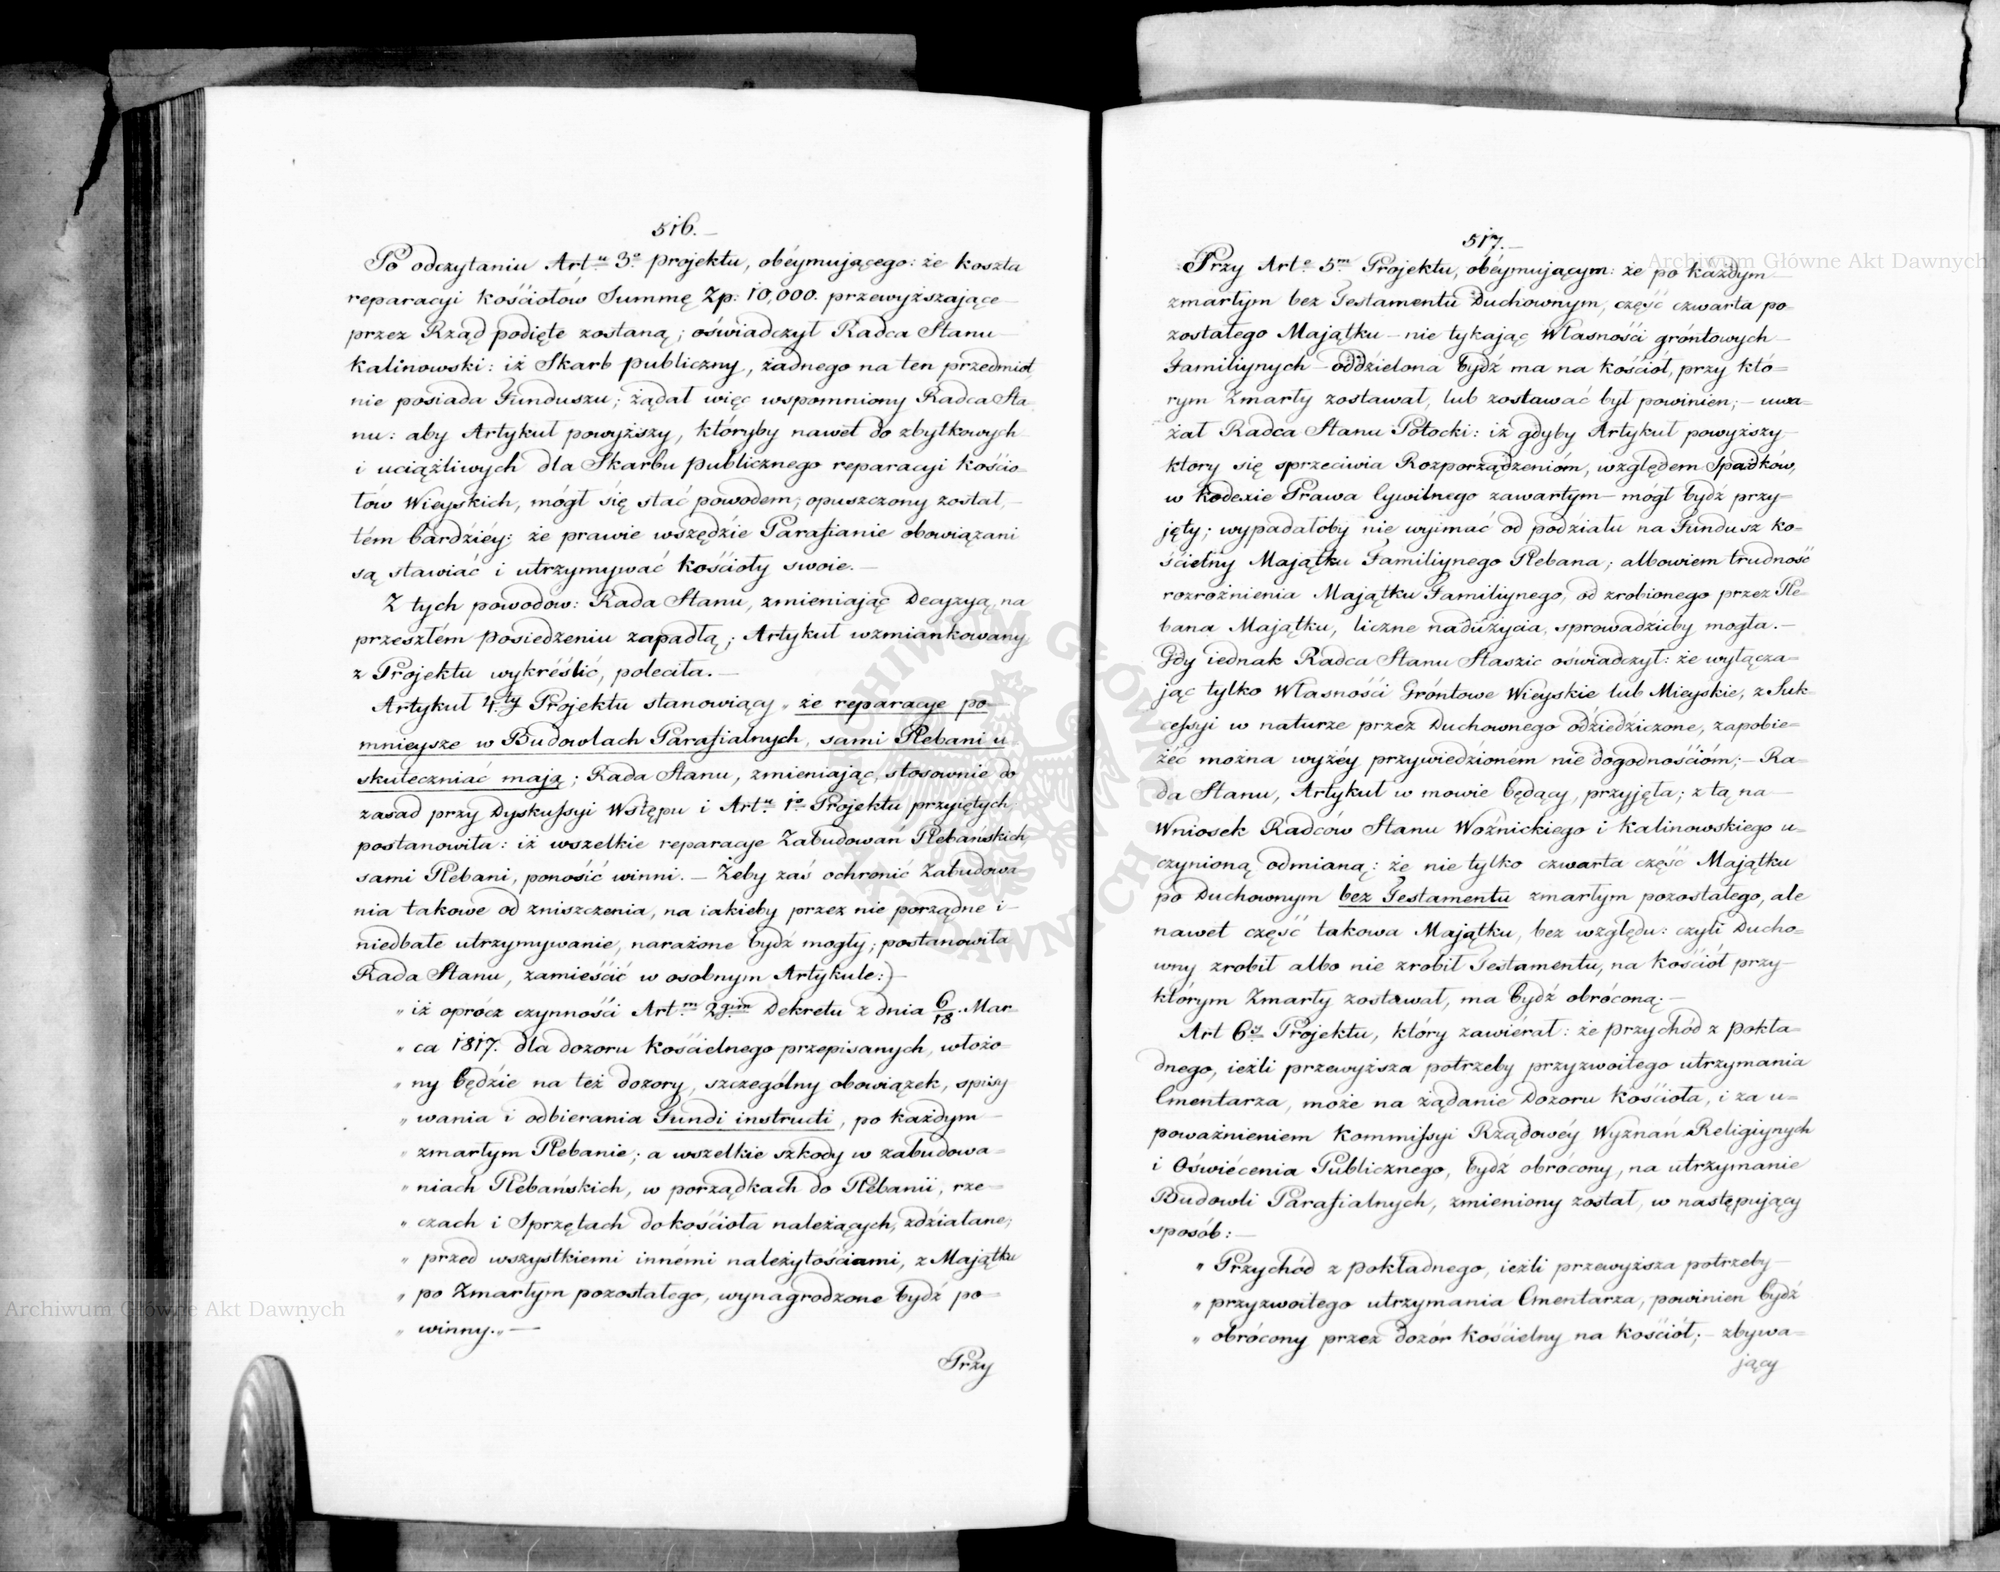 516.—
Po odczytaniu Art.u 3o projektu, obéymującego: że koszta
reparacyi kościołów Summę Zp: 10,000. przewyższające—
przez Rząd podięte zostaną; oświadczył Radca Stanu—
Kalinowski: iż Skarb publiczny, żadnego na ten przedmiot,
nie posiada Funduszu; żądał więc wspomniony Radca Sta
nu: aby Artykuł powyższy, któryby nawet do zbytkowych—
i uciążliwych dla Skarbu publicznego reparacyi kościo=
łów Wieyskich, mógł się stać powodem, opuszczony został,—
tém bardziéy: że prawie wszędzie Parafianie obowiązani
są, stawiać i utrzymywać kościoły swoie.—
Z tych powodow: Rada Stanu, zmieniając Decyzyą, na
przeszłém posiedzeniu zapadłą; Artykuł wzmiankowany
z Projektu wykréślić, poleciła.—
Artykuł 4ty Projektu stanowiący „że reparacye po=
mnieysze w Budowlach Parafialnych, sami Plebani u=
skuteczniać mają; Rada Stanu, zmieniając, stosownie do
zasad przy Dyskussyi Wstępu i Art.u 1o Projektu przyiętych,
postanowiła: iż wszelkie reparacye Zabudowań Plebańskich,
sami Plebani, ponosić winni.— Żeby zaś ochronić Zabudowa
nia takowe od zniszczenia, na iakieby przez nie porządne i—
niedbałe utrzymywanie, narażone bydź mogły; postanowiła
Rada Stanu, zamieścić w osobnym Artykule:)—
„ iż oprócz czynności Art.m 2gim Dekretu z dnia 6/18. Mar=
„ ca 1817. dla dozoru kościelnego przepisanych, włożo=
„ ny będzie na też dozory, szczególny obowiązek, spisy
„ wania i odbierania Fundi instructi, po każdym—
„ zmarłym Plebanie; a wszelkie szkody w zabudowa=
„ niach Plebańskich, w porządkach do Plebanii, rze=
„ czach i Sprzętach do kościoła należących, zdziałane;
„ przed wszystkiemi innémi należytościami, z Majątku
„ po Zmarłym pozostałego, wynagrodzone bydź po=
„ winny.„—
Przy
517.—
Przy Art.e 5m Projektu, obéymującym: że po każdym—
zmarłym bez Testamentu Duchownym, część czwarta po
zostałego Majątku— nie tykając Własności gróntowych—
Familiynych— oddzielona bydź ma na kościół, przy któ=
rym Zmarły zostawał, lub zostawać był powinien;— uwa=
żał Radca Stanu Potocki: iż gdyby Artykuł powyższy—
ktory się sprzeciwia Rozporządzenióm, względem Spadków,
w kodexie Prawa Cywilnego zawartym— mógł bydź przy=
jęty; wypadałoby nie wyimać od podziału na Fundusz ko=
ścielny Majątku Familiynego Plebana; albowiem trudność
rozroźnienia Majątku Familiynego, od zrobionego przez Ple=
bana Majątku, liczne nadużycia, sprowadzićby mogła.—
Gdy iednak Radca Stanu Staszic oświadczył: że wyłącza=
jąc tylko Własności Gróntowe Wieyskie lub Mieyskie, z Suk=
cessyi w naturze przez Duchownego odziedziczone, zapobie=
żéć można wyżéy przywiedzioném nie dogodnościóm;— Ra=
da Stanu, Artykuł w mowie będący, przyjęła; z tą na—
Wniosek Radców Stanu Woźnickiego i Kalinowskiego u=
czynioną odmianą: że nie tylko czwarta część Majątku
po Duchownym bez Testamentu zmarłym pozostałego, ale
nawet część takowa Majątku, bez względu: czyli Ducho=
wny zrobił albo nie zrobił Testamentu, na kościół przy—
którym Zmarły zostawał, ma bydź obróconą;—
Art 6y Projektu, który zawiérał: że przychód z pokła=
dnego, ieżli przewyższa potrzeby przyzwoitego utrzymania
Cmentarza, może na żądanie Dozoru kościoła, i za u=
poważnieniem Kommissyi Rządowéy Wyznań Religiynych
i Oświécenia Publicznego, bydź obrócony, na utrzymanie
Budowli Parafialnych, zmieniony został, w następujący
sposób:—
„ Przychód z pokładnego, ieżli przewyższa potrzeby—
„ przyzwoitego utrzymania Cmentarza, powinien bydź
„ obrócony przez dozór kościelny na kościół;— zbywa=
jący
Archiwum Główne Akt Dawnych
Archiwum Główne Akt Dawnych
ARCHIWUM GŁÓWNE AKT DAWNYCH